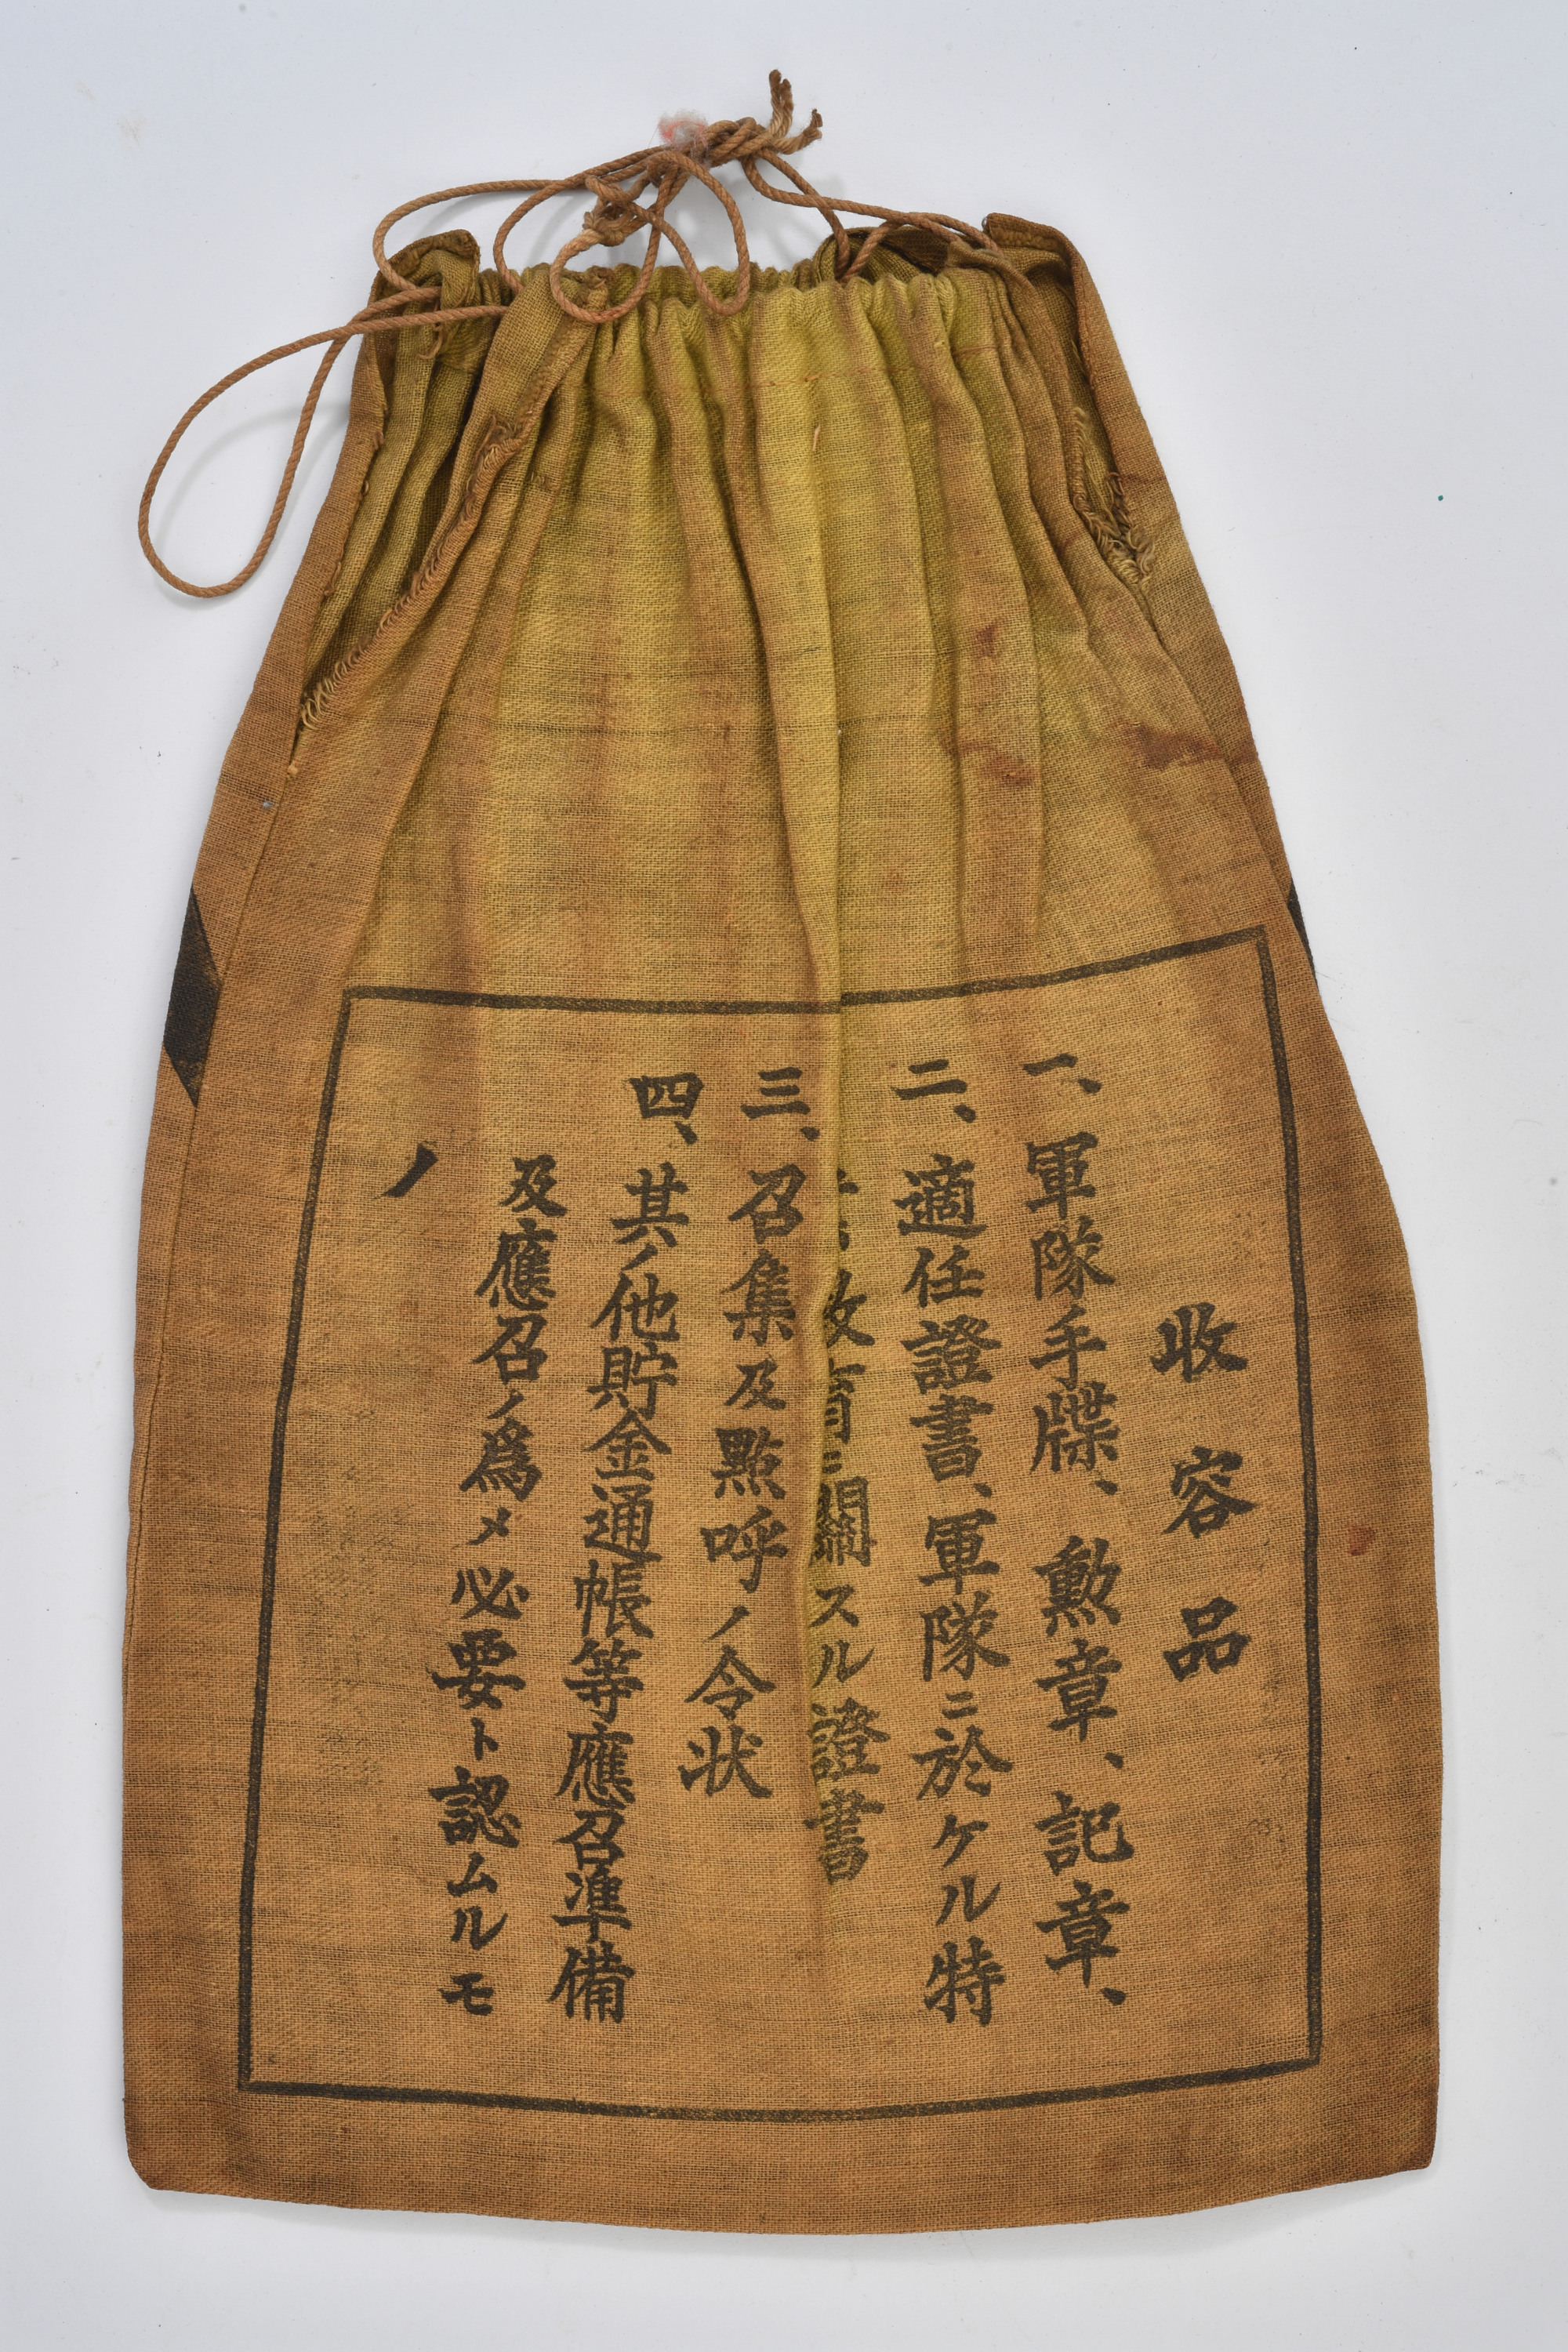 收容品
一、軍隊手牒、勲章、記章、
二、適任證書、軍隊ニ於ケル特
教育ニ關スル證書
三、召集及點呼ノ令状
四、其ノ他貯金通帳等應召準備
及應召ノ爲メ必要ト認ムルモ
ノ